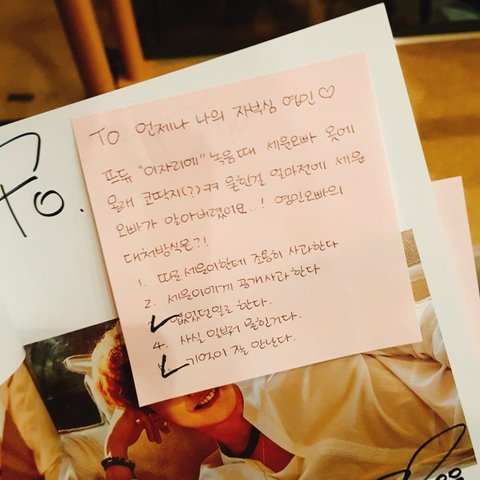 TO. 언제나 나의 자부심 영민♡
프듀 "이자리에" 녹음때 세운오빠 옷에
몰래 코딱지(??)ㅋㅋ 묻힌걸 얼마전에 세운
오빠가 알아버렸어요..! 영민오빠의
대처방식은?!
1. 따로 세운이한테 조용히 사과한다
2. 세운이에게 공개사과한다
없었던일로 한다.
4. 사실 일부러 묻힌거다.
기억이 잘 안난다.
To.